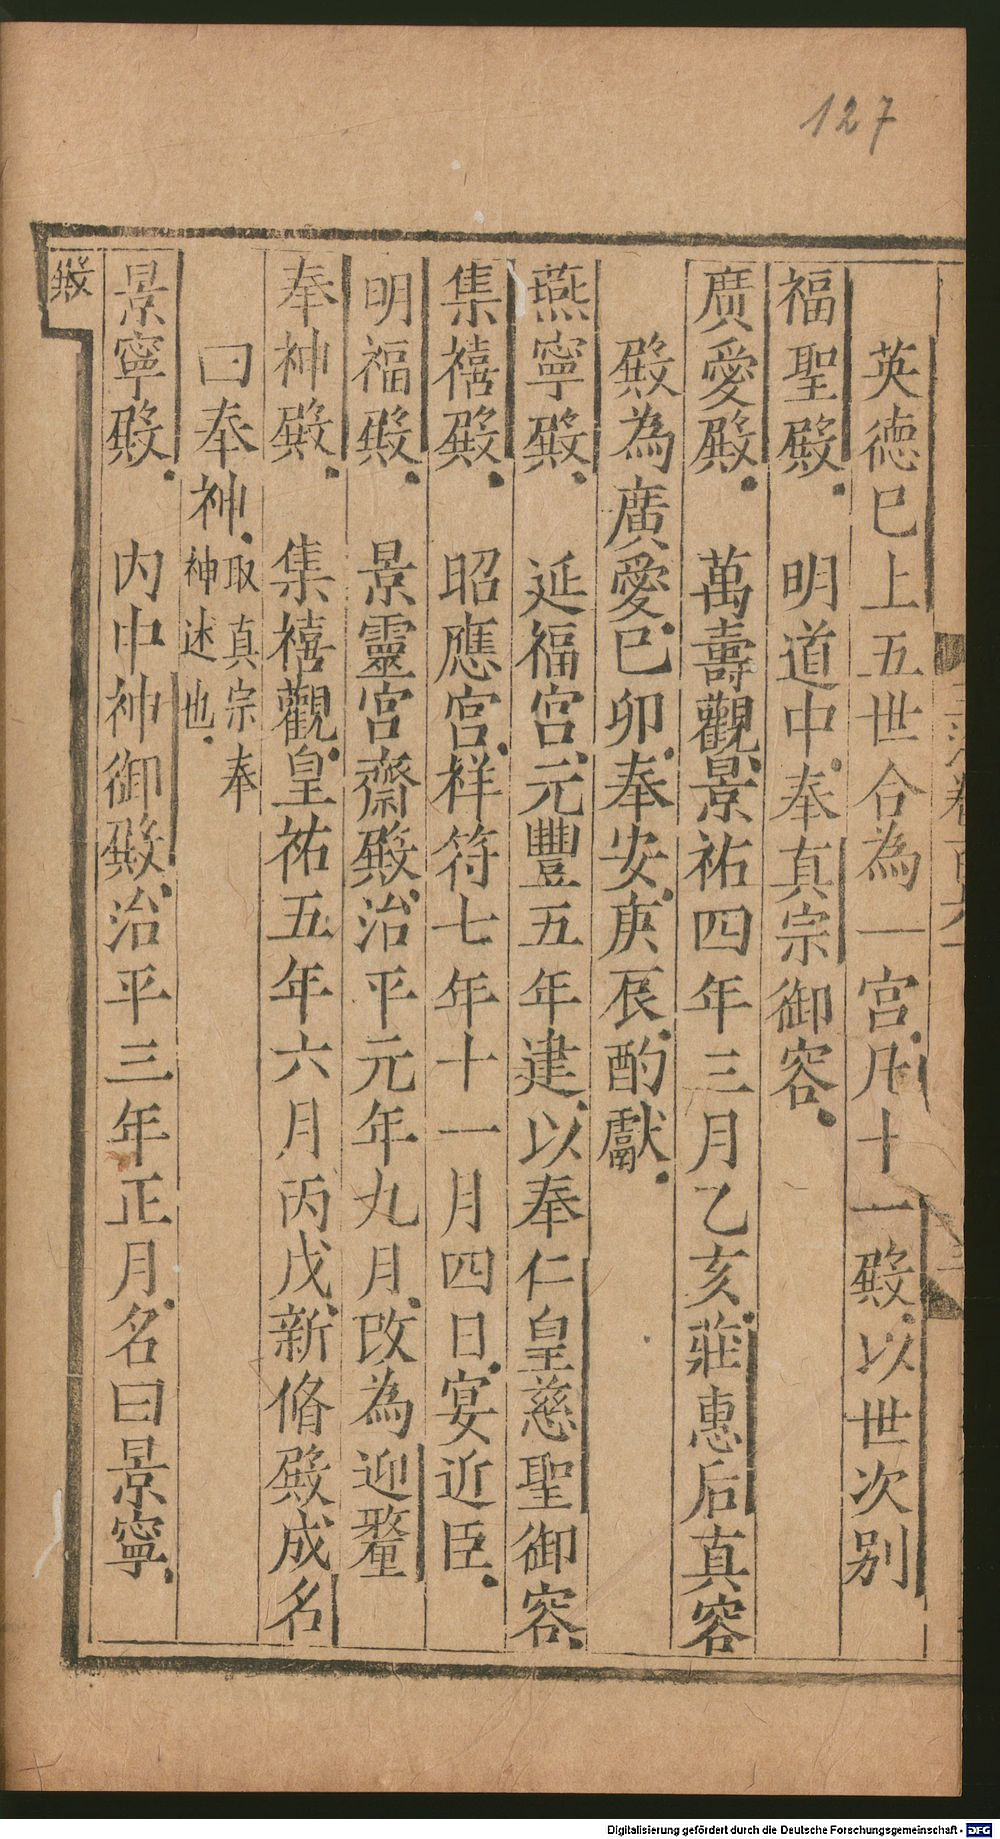 127
英德巳上五世合為一宮。凡十一殿。以世次別
福聖殿。　明道中。奉真宗御容。
廣愛殿。　萬壽觀。景祐四年三月乙亥。莊惠后真容
殿為廣愛。巳卯。奉安。庚辰。酌獻。
燕寧殿。　延福宮。元豐五年建。以奉仁皇慈聖御容。
集禧殿。　昭應宮。祥符七年十一月四日。宴近臣。
明福殿。　景靈宮齋殿。治平元年九月。改為迎釐
奉神殿。　集禧觀。皇祐五年六月丙戌。新脩殿成名
曰奉神。取真宗奉神述也。
景寧殿。　內中神御殿。治平三年正月。名曰景寧。
殿
Digitalisierung gefördert durch die Deutsche Forschungsgemeinschaft - DFG